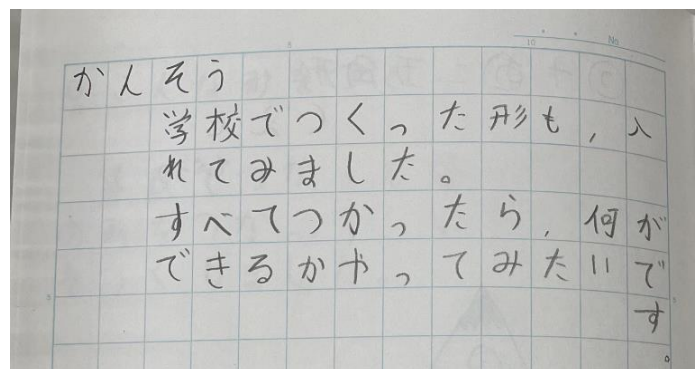 No.
10
かんそう
学校でつくった形も,入
れてみました。
すべてつかったら,何が
できるかやってみたいで
す。